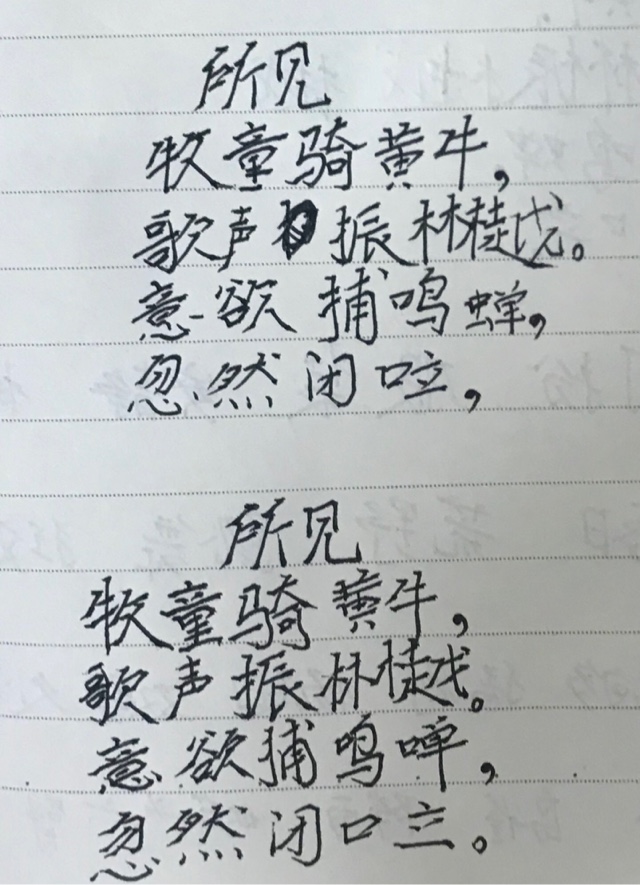 所见
牧童骑黄牛，
歌声振林樾。
意欲捕鸣蝉，
忽然闭口立，
所见
牧童骑黄牛，
歌声振林樾。
意欲捕鸣啴，
忽然闭口立。